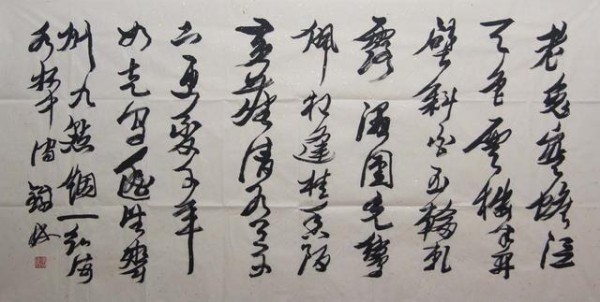 老兔寒蟾泣
天色雲樓半開
壁斜白玉輪軋
露濕團光鸞
佩相逢桂香陌
黃塵清水三山
下更變千年
如走馬遙望齊
州九點烟一泓海
水杯中瀉